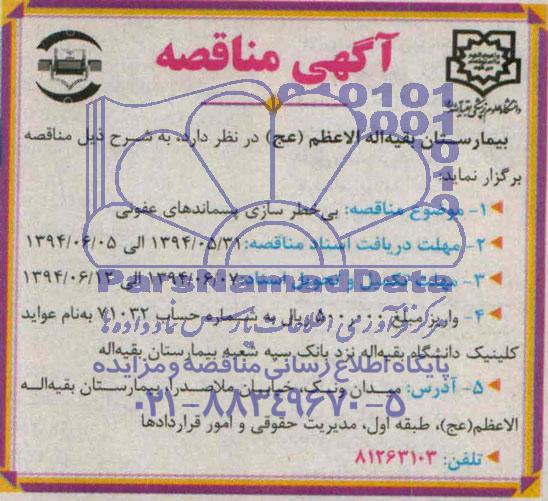 آگهی مناقصه
دانشگاه علوم پزشکی بقیه‌الله
بیمارستان بقیه‌اله الاعظم (عج) در نظر دارد، به شرح ذیل مناقصه
برگزار نماید:
۱- موضوع مناقصه: بی‌خطر سازی پسماندهای عفونی
۲- مهلت دریافت اسناد مناقصه: ۱۳۹۴/۰۵/۳۱ الی ۱۳۹۴/۰۶/۰۵
۳- مهلت تکمیل و تحویل اسناد: ۱۳۹۴/۰۶/۰۷ الی ۱۳۹۴/۰۶/۱۲
۴- واریز مبلغ ۵۰۰,۰۰۰ ریال به شماره حساب ۷۱۰۳۲ به‌نام عواید
کلینیک دانشگاه بقیه‌اله نزد بانک سپه شعبه بیمارستان بقیه‌اله
۵- آدرس: میدان ونک، خیابان ملاصدرا، بیمارستان بقیه‌اله
الاعظم(عج)، طبقه اول، مدیریت حقوقی و امور قراردادها
تلفن: ۸۱۲۶۳۱۰۳
ParsNamadData
مرکز فرآوری اطلاعات پارس نماد داده‌ها
پایگاه اطلاع رسانی مناقصه و مزایده
۰۲۱-۸۸۳۴۹۶۷۰-۵